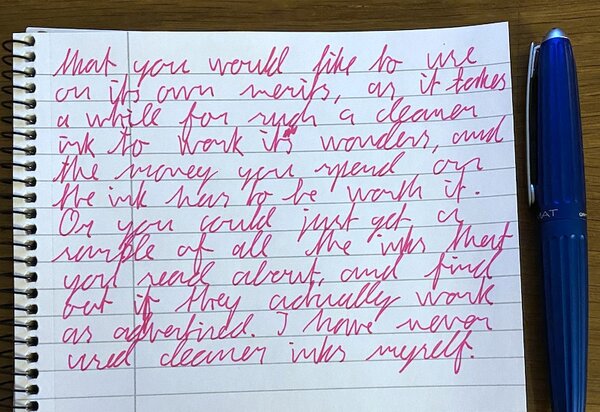 that you would like to use
on its own merits, as it takes
a while for such a cleaner
ink to work its wonders, and
the money you spend on
the ink has to be worth it.
Or you could just get a
sample of all the inks that
you read about, and find
out if they actually work
as advertised. I have never
used cleaner inks myself.